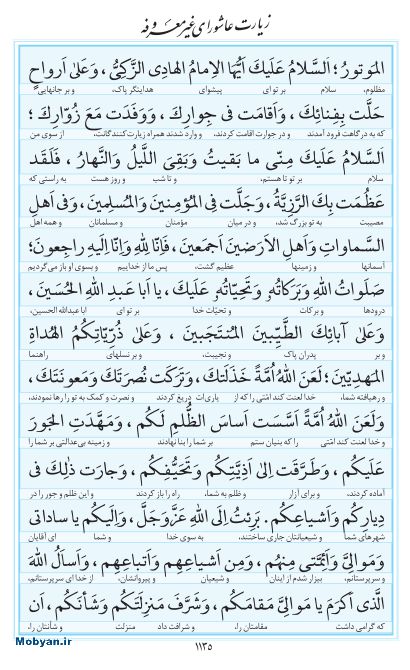 زیارت عاشورای غیر معروفه
المَوتورُ؛ اَلسَّلامُ عَلَیكَ اَیُّهَا الاِمامُ الهادِی الزَّكِیُّ، وَعَلىٰ اَرواحٍ
مظلوم، سلام بر تو ای پیشوای هدایتگر پاک، و بر جانهایی
حَلَّت بِفِنائِكَ، وَاَقامَت فی جِوارِكَ، وَوَفَدَت مَعَ زُوّارِكَ؛
که به درگاهت فرود آمدند و در جوارت اقامت کردند، و وارد شدند همراه زیارت‌کنندگانت. از سوی من
اَلسَّلامُ عَلَیكَ مِنّی ما بَقیتُ وَبَقِیَ اللَّیلُ وَالنَّهارُ، فَلَقَد
سلام بر تو تا هستم، و تا شب و روز هست به راستی که
عَظُمَت بِكَ الرَّزِیَّةُ، وَجَلَّت فِی المُؤمِنینَ وَالمُسلِمینَ، وَفی اَهلِ
مصیبت به تو بزرگ شد، و در میان مؤمنان و مسلمانان و همه اهل
السَّماواتِ وَاَهلِ الاَرَضینَ اَجمَعینَ، فَاِنّا لِلّٰهِ وَاِنّا اِلَیهِ راجِعونَ؛
آسمانها و زمینها عظیم گشت، پس ما از خداییم و بسوی او باز می‌گردیم
صَلَواتُ اللّٰهِ وَبَرَكاتُهُ وَتَحِیّاتُهُ عَلَیكَ، یا اَبا عَبدِ اللّٰهِ الحُسَینَ،
درودها و برکات و تحیّات خدا بر تو ای ابا عبدالله الحسین،
وَعَلىٰ آبائِكَ الطَّیِّبینَ المُنتَجَبینَ، وَعَلىٰ ذُرِّیّاتِكُمُ الهُداةِ
و بر پدران پاک و نجیبت، و بر نسلهای راهنما
المَهدِیّینَ؛ لَعَنَ اللّٰهُ اُمَّةً خَذَلَتكَ، وَتَرَكَت نُصرَتَكَ وَمَعونَتَكَ،
و رهیافته شما، خدا لعنت کند امّتی را که از یاری‌ات دریغ کردند و نصرت و کمک به تو را رها نمودند،
وَلَعَنَ اللّٰهُ اُمَّةً اَسَّسَت اَساسَ الظُّلمِ لَكُم، وَمَهَّدَتِ الجَورَ
و خدا لعنت کند امّتی را که بنیان ستم بر شما را بنا نهادند و زمینه بی‌عدالتی بر شما را
عَلَیكُم، وَطَرَّقَت اِلىٰ اَذِیَّتِكُم وَتَحَیُّفِكُم، وَجارَت ذٰلِكَ فی
آماده کردند، و برای آزار و ظلم به شما، راه را باز کردند و این ظلم و جور را در
دِیارِكُم وَاَشیاعِكُم. بَرِئتُ اِلَى اللّٰهِ عَزَّوَجَلَّ، وَاِلَیكُم یا ساداتی
شهرهای شما و شیعیانتان جاری ساختند، به سوی خدا و شما ای آقایان
وَمَوالِیَّ وَاَئِمَّتی مِنهُم، وَمِن اَشیاعِهِم وَاَتباعِهِم، وَاَساَلُ اللّٰهَ
و سرپرستانم، بیزار شدم از اینان و شیعیان و پیروانشان، از خدا ای سرپرستانم،
الَّذی اَكرَمَ یا مَوالِیَّ مَقامَكُم، وَشَرَّفَ مَنزِلَتَكُم وَشَأنَكُم، اَن
که گرامی داشت مقامتان را، و شرافت داد منزلت و شأنتان را
۱۱۳۵
Mobyan.ir